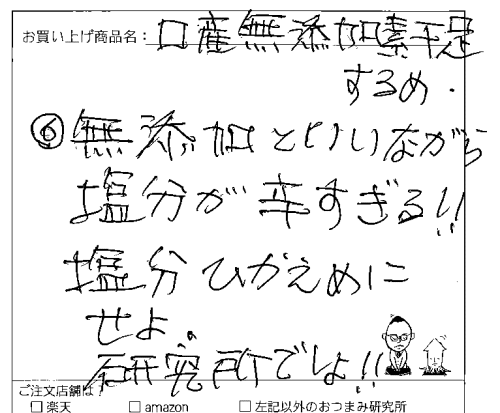 お買い上げ商品名：口産無添加素干足
するめ.
⑥無添加といいながら
塩分が辛すぎる!!
塩分ひかえめに
せよ、
研究所でしょ!!
ご注文店舗は？
□楽天 □amazon □左記以外のおつまみ研究所